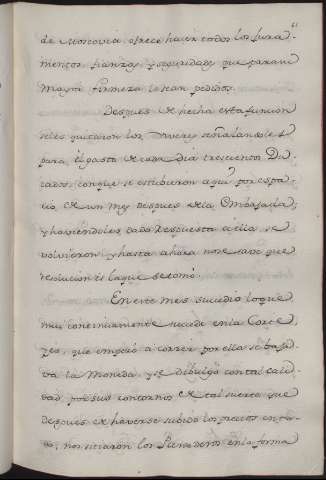 de Moscovia, ofrece hacer todos los Jura-
mentos, fianzas y seguridades que para su
mayor firmeza le sean pedidos.
Despues de hecha esta funcion
se les quitaron los señalandoles
para el gasto de cada dia trescientos Du-
cados; con que se estubieron aqui por espa-
cio de un mes despues de la Embajada;
y haviendoles dado Respuesta à ella, se
volvieron y hasta ahora no se save que
resolucion es la que se tomó.
En este mes sucedio lo que
mui continuamente sucede en la Corte,
pues, que empezó a correr por ella se baja-
va la Moneda, y se divulgó con tal cali-
dad por sus contornos de tal suerte que
despues de haverse subido los precios en to-
do, nos sitiaron los Panaderos en la forma